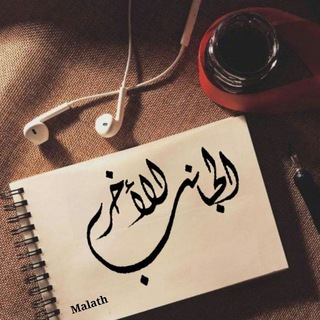 الجانب الأخر
Malath